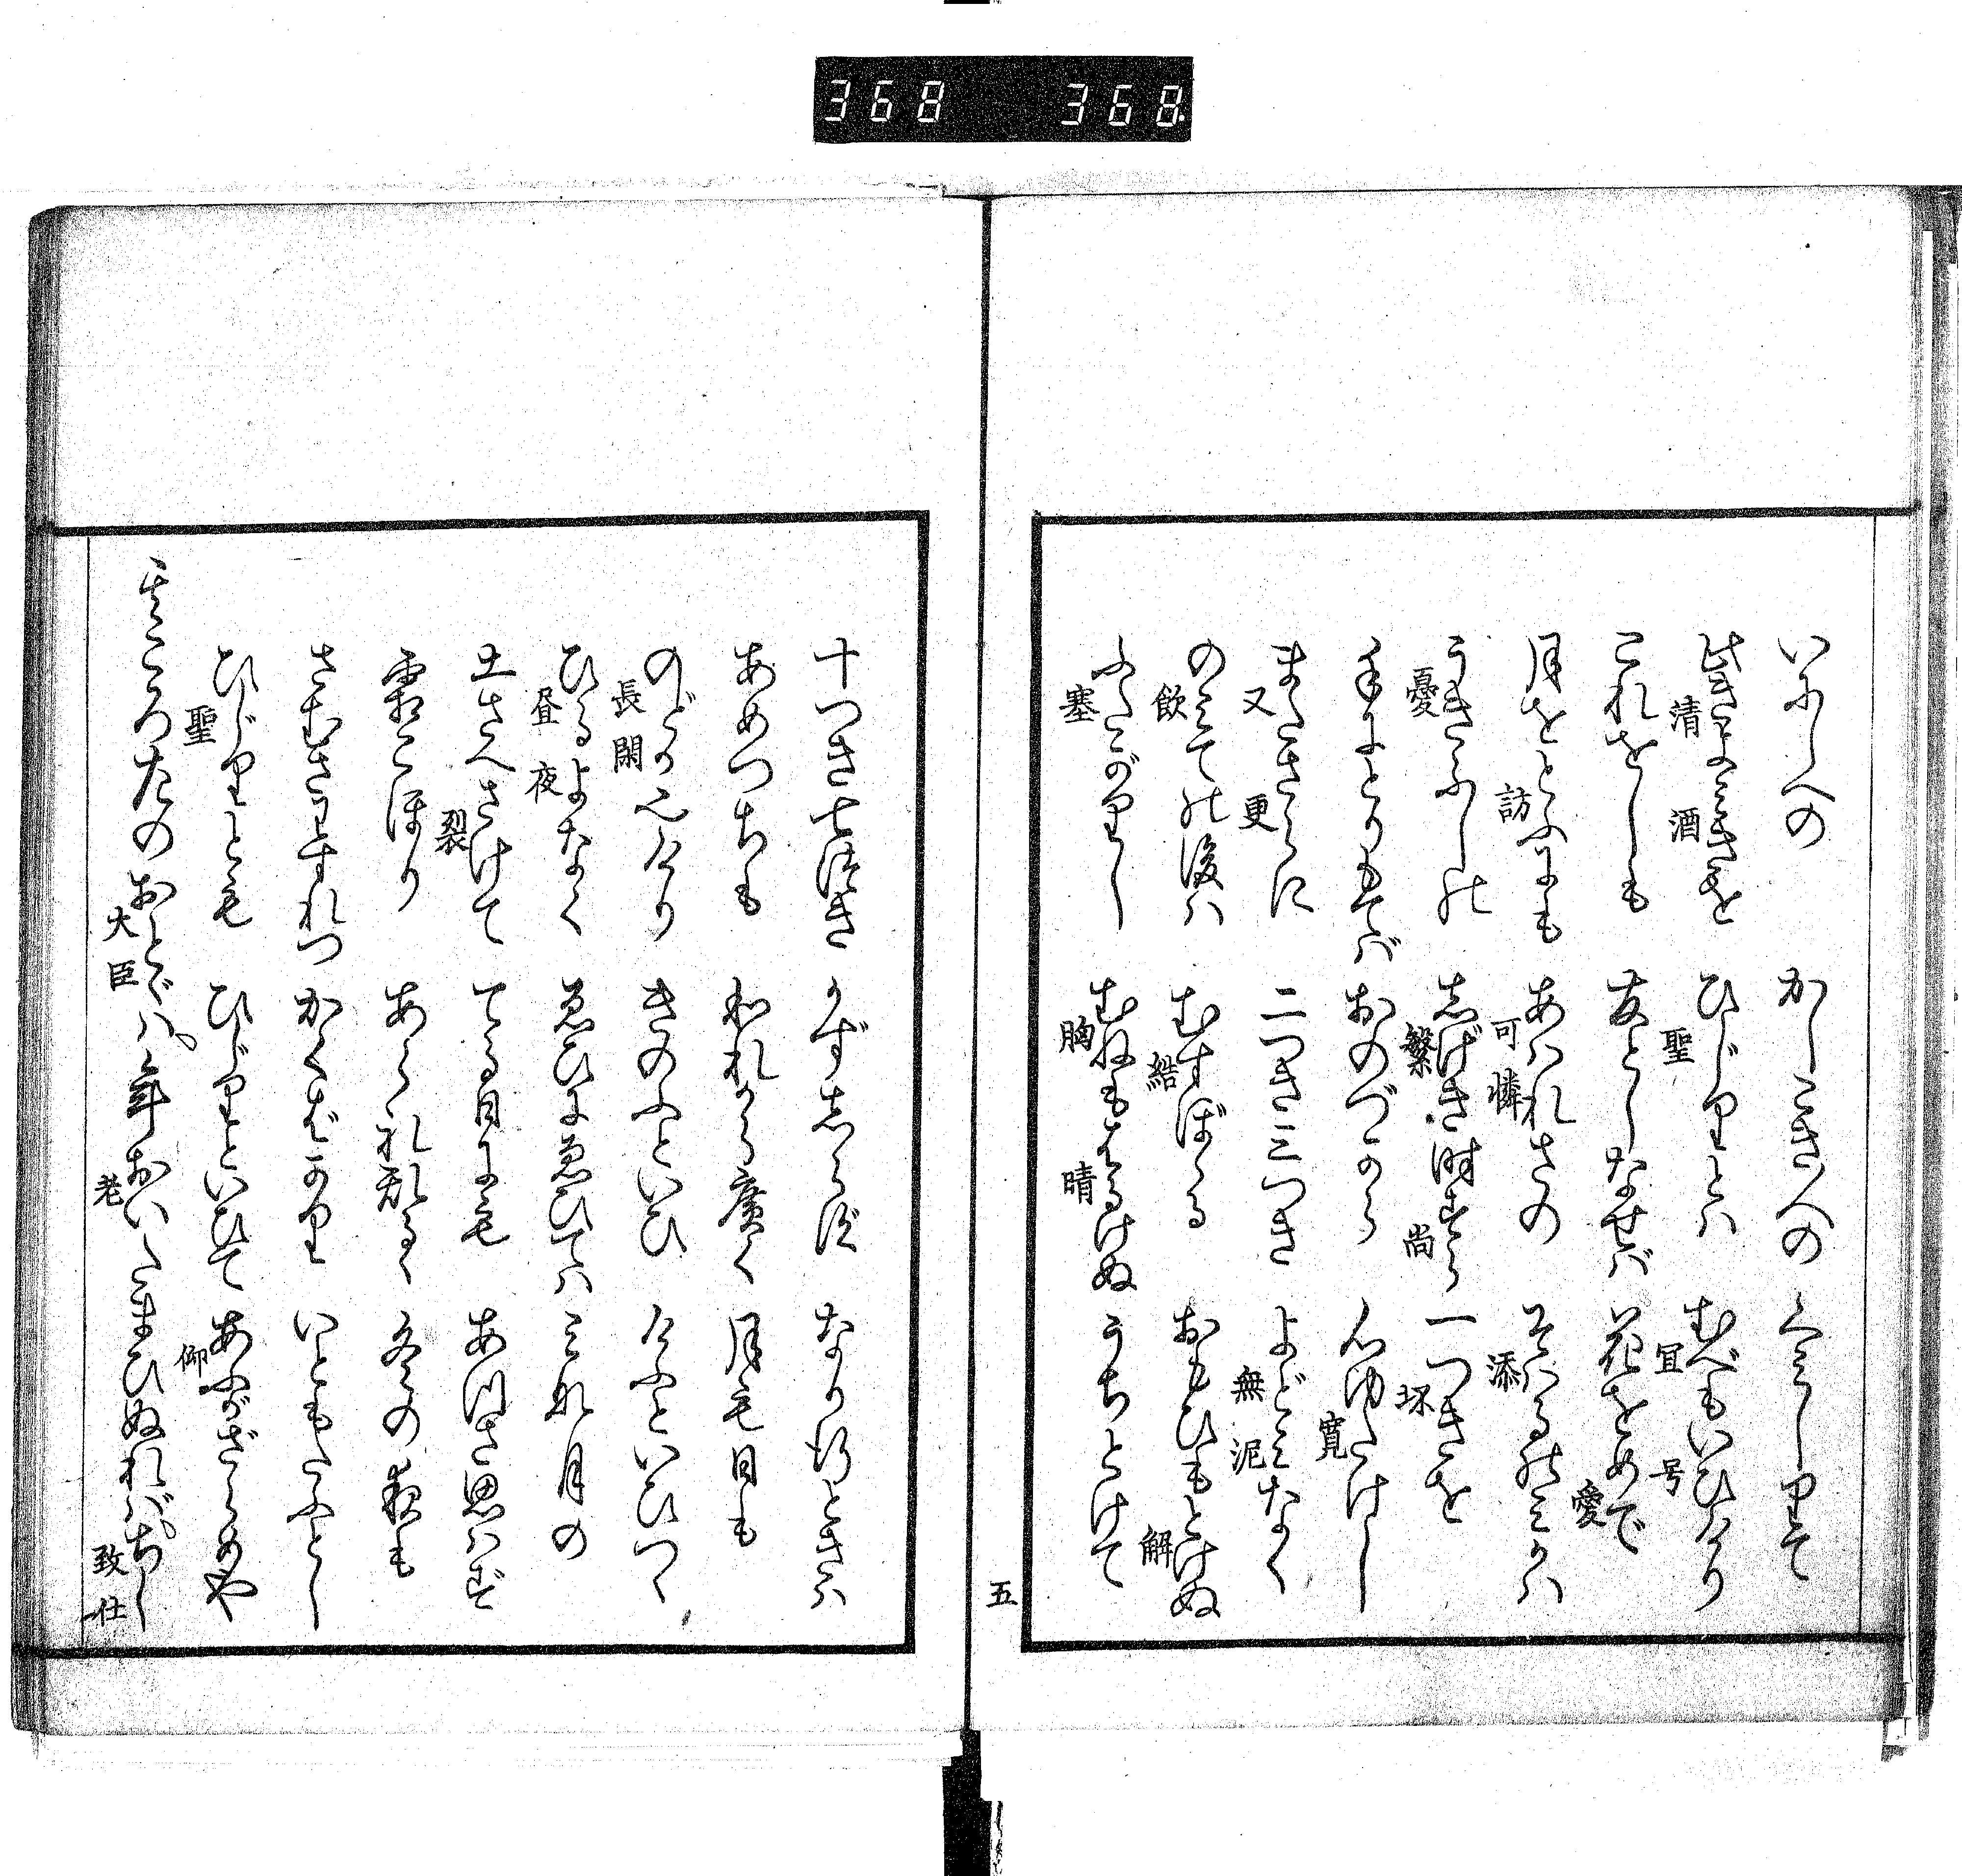 368 368
いにしへの かしこき人の くみしりて
此きよみきを ひじりとハ むべもいひけり
清 酒 聖 宜 号
これをしも 友としなせバ 花をめで
愛
月をとふにも あハれさの そハるのみかハ
訪 可憐 添
うきふしの しげき時すら 一つきを
憂 繁 尚 坏
手にとりもてバ おのづから 心ゆたけし
寛
またさらに 二つき三つき よどみなく
又 更 無泥
のみての後ハ むすぼゝる おもひもとけぬ
飲 結 解
ふたがりし むねもはるけぬ うちとけて
塞 胸 晴
五
十つき七つき かずしらず なり行ときハ
あめつちも われから広く 月も日も
のどけかりけり きのふといひ けふといひつゝ
長閑
ひるよなく ゑひにゑひてハ みな月の
昼 夜
土さへさけて てる日にも あつさ思ハず
裂
霜こほり あられふる 冬の夜も
さむさわすれつ かくばかり いともたふとし
ひじりとも ひじりといひて あふがざらめや
聖 仰
そのころたのおとゞハ年おいたまひぬれバちし
大臣 老 致仕